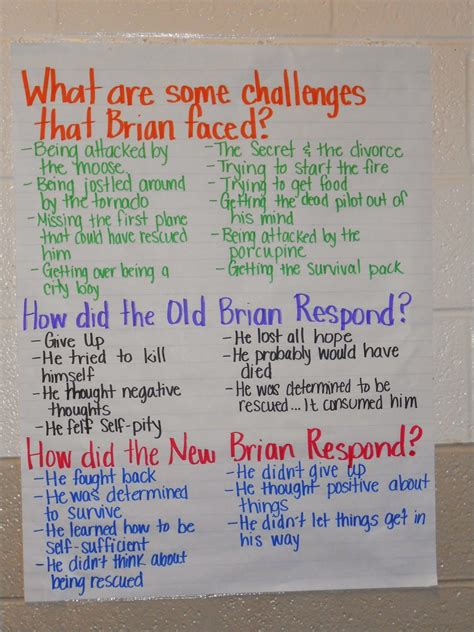 What are some challenges
that Brian faced?
-Being attacked by
the moose
-Being jostled around
by the tornado
-Missing the first plane
that could have rescued
him
-Getting over being a
city boy
-The Secret & the divorce
-Trying to start the fire
-Trying to get food
-Getting the dead pilot out of
his mind
-Being attacked by the
porcupine
-Getting the Survival pack
How did the Old Brian Respond?
-Give Up
-He tried to kill
himself
-He thought negative
thoughts
-He felt Self-pity
-He lost all hope
-He probably would have
died
-He was determined to be
rescued... It consumed him
How did the New Brian Respond?
-He fought back
-He was determined
to survive
-He learned how to be
self-sufficient
-He didn't think about
being rescued
-He didn't give up
-He thought positive about
things
-He didn't let things get in
his way